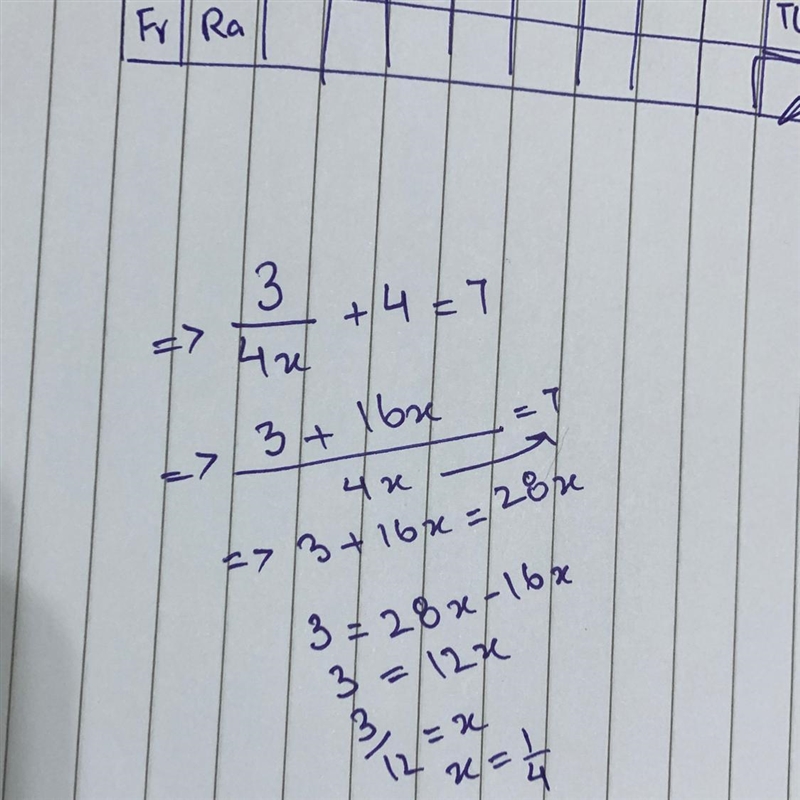 Fr Ra
=> 3/4x + 4 = 7
=> 3 + 16x/4x = 7
=> 3 + 16x = 28x
3 = 28x - 16x
3 = 12x
3/12 = x
x = 1/4